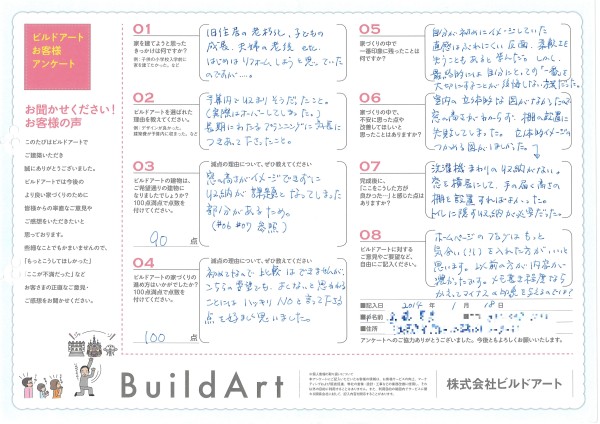 ビルドアート
お客様
アンケート
お聞かせください！
お客様の声
このたびはビルドアートで
ご建築いただき
誠にありがとうございました。
ビルドアートでは今後の
より良い家づくりのために
皆様からの率直なご意見や
ご感想をいただきたいと
思っております。
些細なことでもかまいませんので、
「もっとこうしてほしかった」
「ここが不満だった」など
お客さまの正直なご意見・
ご感想をお聞かせください。
01
家を建てようと思った
きっかけは何ですか？
例：子供の小学校入学前に
家を建てたかった。など
旧住居の老朽化、子どもの
成長、夫婦の老後 etc.
はじめはリフォームしようと思っていた
のですが…。
02
ビルドアートを選ばれた
理由を教えてください。
例：デザインが良かった。
建築費が予算内に収まった。など
予算内で収まりそうだったこと。
（実際はオーバーしてしまった。）
長期にわたるプランニングに気長に
つきあってきたこと。
03
ビルドアートの建物は、
ご希望通りの建物に
なりましたでしょうか？
100点満点で点数を
付けてください。
90 点
減点の理由について、ぜひ教えてください
窓の高さがイメージできずに
収納が課題となってしまった
部分があるため。
(#06 #07 参照)
04
ビルドアートの家づくりの
進め方はいかがでしたか？
100点満点で点数を
付けてください。
100 点
減点の理由について、ぜひ教えてください
初めてなので比較はできませんが、
こちらの希望でも、よくないと思われる
ことには ハッキリNOと言って下さる
点を好ましく思いました。
05
家づくりの中で
一番印象に残ったことは
何ですか？
自分が初めにイメージしていた
06
家づくりの中で、
不安に思った点や
改善してほしいと
思ったことはありますか？
室内の立体的な図がなかったので
窓の高さがわからず、棚の設置に
失敗してしまった。立体的イメージの
つかめる図がほしかった。
07
完成後に、
「ここをこうした方が
良かったー」と感じた点は
ありますか？
洗濯機まわりの収納がない。
窓を横長にして、手の届く高さの
棚を設置すればよかった。
トイレに隠す収納が必要だった。
08
ビルドアートに対する
ご意見やご要望など、
自由にご記入ください。
ホームページのブログはもっと
気合い(!?)を入れた方がいいと
思います。以前の方が内容が
濃かったです。
■記入日 2014 年 1 月 18 日
■氏名
■住所
アンケートへのご協力ありがとうございました。今後ともよろしくお願いいたします。
BuildArt
株式会社ビルドアート